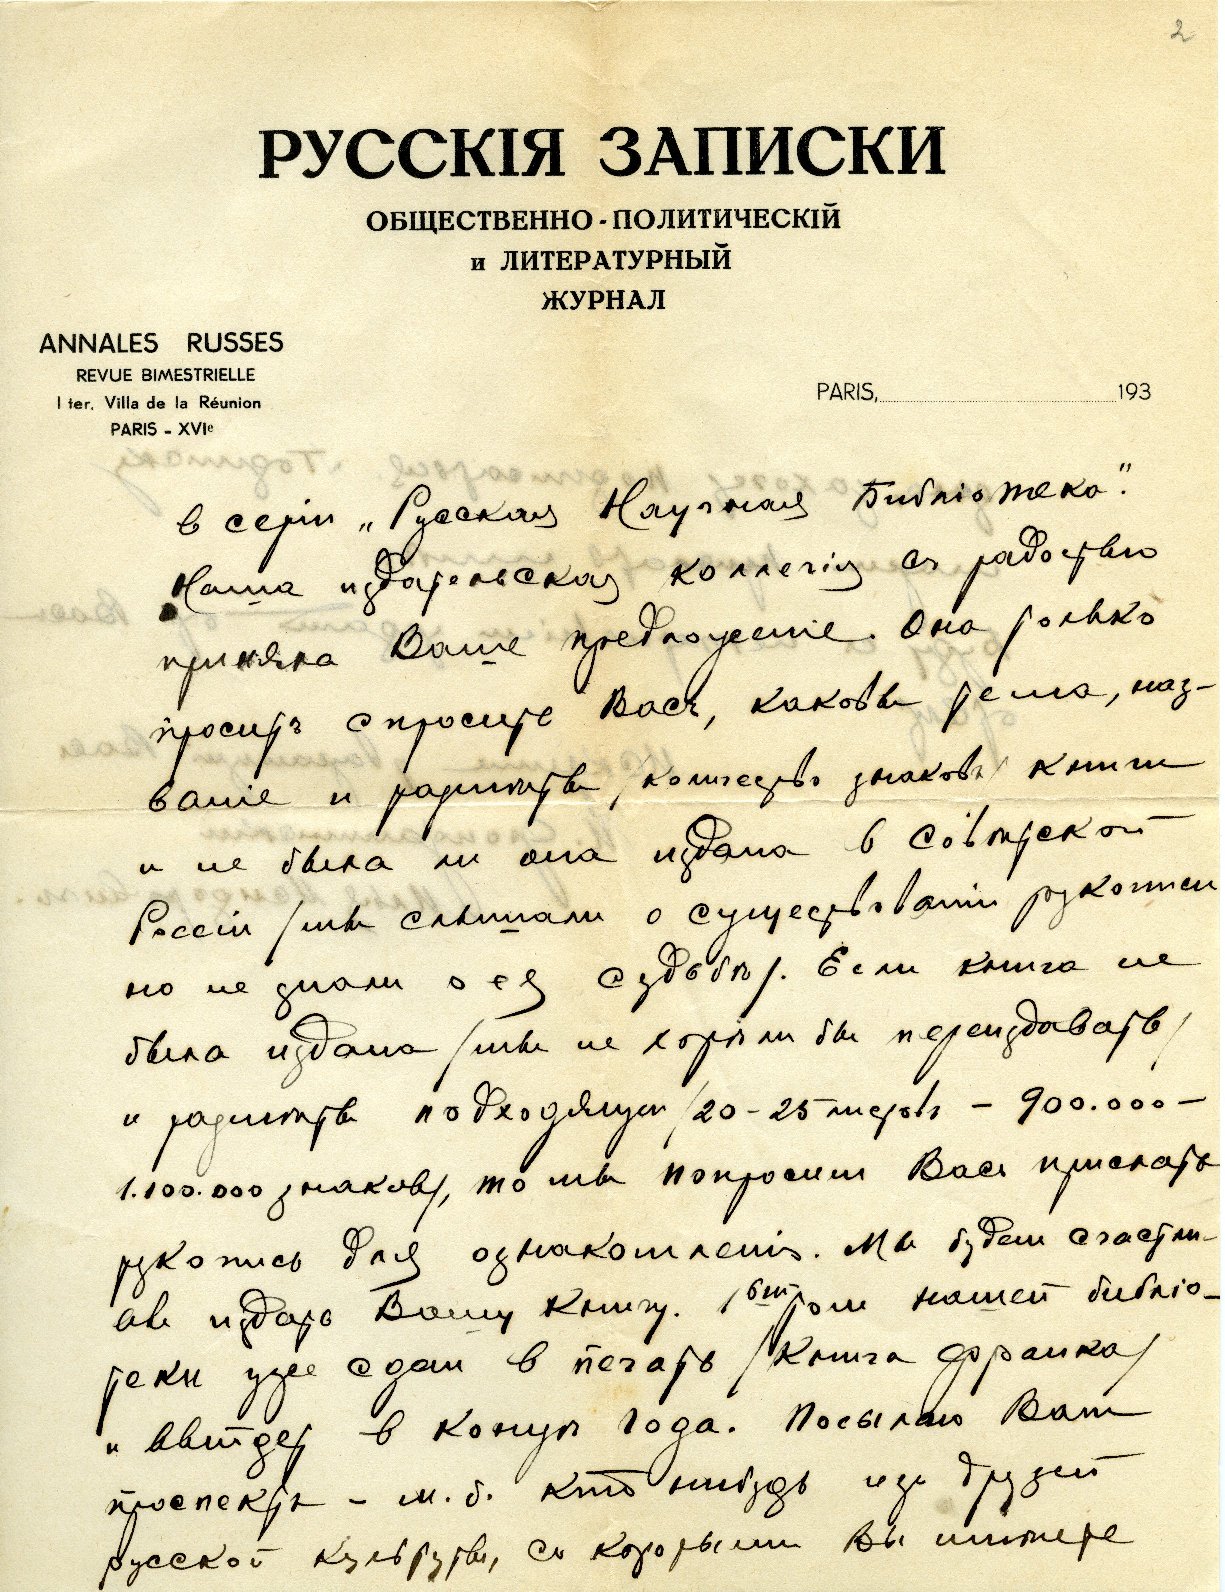 2
РУССКІЯ ЗАПИСКИ
ОБЩЕСТВЕННО-ПОЛИТИЧЕСКІЙ
и ЛИТЕРАТУРНЫЙ
ЖУРНАЛ
ANNALES RUSSES
REVUE BIMESTRIELLE
1 ter, Villa de la Réunion
PARIS - XVIe
PARIS, 193
в серіи „Русская Научная Библіотека".
Наша издательская коллегія съ радостью
приняла Ваше предложеніе. Она только
проситъ спросить Васъ, каковы тема, наз-
ваніе и размѣры /количество знаковъ/ книги
и не была ли она издана в Совѣтской
Россіи /мы слышали о существованіи рукописи
но не знали о ея судьбѣ/. Если книга не
была издана /мы не хотѣли бы переиздавать/
и размѣры подходящи /20-25 листовъ - 900.000 -
1.100.000 знаков/, то мы попросим Васъ прислать
рукопись для ознакомленія. Мы будем счастли-
вы издать Вашу книгу. 1ый том нашей библіо-
теки уже сдан в печать /книга Франка/
и выйдет в концѣ года. Посылаю Вам
проспекты - м.б. кто нибудь изъ друзей
русской культуры, съ которыми Вы имѣете